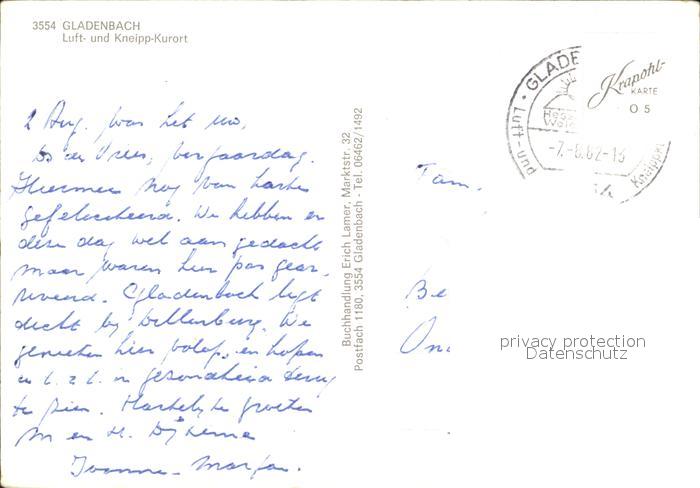 3554 GLADENBACH
Luft- und Kneipp-Kurort
2 Aug. was het
de Vries, verjaardag.
Hiermee nog van harte
gefeliciteerd. We hebben er
deze dag wel aan gedacht
maar waren hier pas gear-
riveerd. Gladenbach ligt
dicht bij Dillenburg. We
genieten hier volop, en hopen
u t.z.t. in gezondheid terug
te zien. Hartelijke groeten
M en H. Dijkema
Ivonne - Marjan.
Buchhandlung Erich Lamer, Marktstr. 32
Postfach 1180, 3554 Gladenbach - Tel. 06462/1492
GLADE
Luft- und
Kneippk
-7.-8.82-13
Krapohl-
KARTE
O 5
Fam.
Be
On
privacy protection
Datenschutz